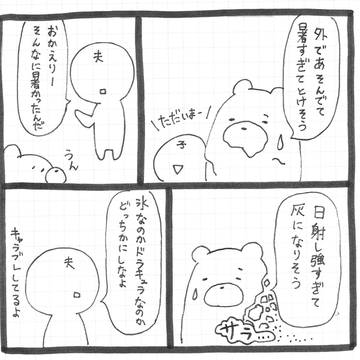 外であそんでて
暑すぎてとけそう
ただいまー
おかえりー
そんなに暑かったんだ
夫
うん
日射し強すぎて
灰になりそう
サラ…
氷なのかドラキュラなのか
どっちかにしなよ
夫
キャラブレしてるよ